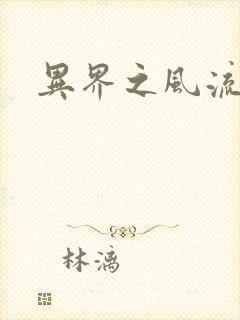 異界之風流
林漓